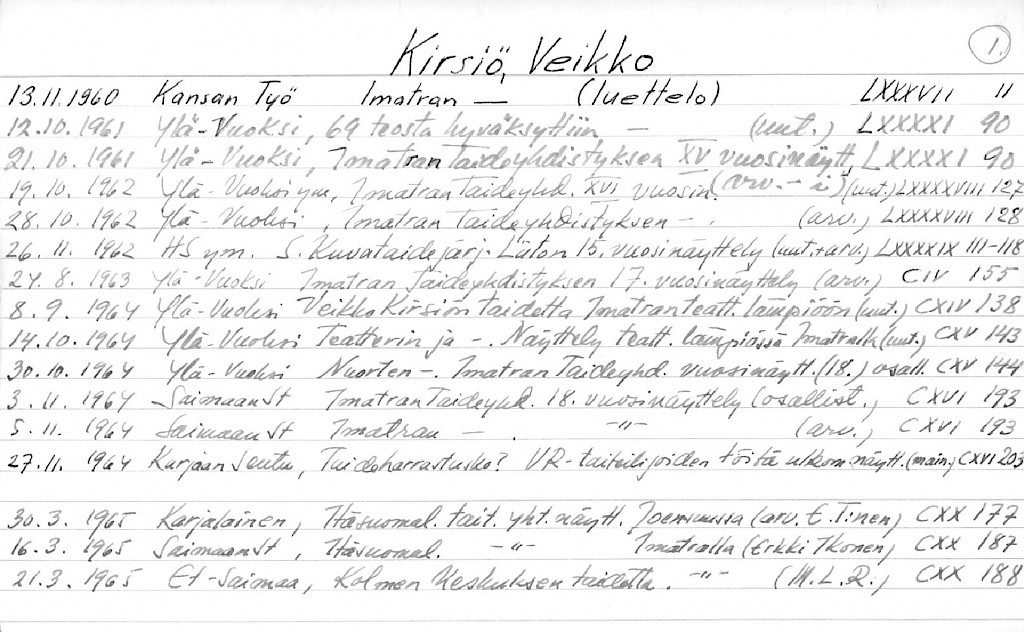 1.
Kirsiö, Veikko
13.11.1960 Kansan Työ Imatran — (luettelo) LXXXVII 11
12.10.1961 Ylä-Vuoksi, 69 teosta hyväksyttiin — (uut.) LXXXXI 90
21.10.1961 Ylä-Vuoksi, Imatran Taideyhdistyksen XV vuosinäytt. LXXXXI 90
19.10.1962 Ylä-Vuoksi ym, Imatran Taideyhd. XVI vuosin. (arv.-i) (uut.) LXXXXVIII 127
28.10.1962 Ylä-Vuoksi, Imatran Taideyhdistyksen - . (arv.) LXXXXVIII 128
26.11.1962 HS ym. S. Kuvataidejärj. Liiton 15. vuosinäyttely (uut.+arv.) LXXXXIX 111-118
24.8.1963 Ylä-Vuoksi Imatran Taideyhdistyksen 17. vuosinäyttely (arv.) CIV 155
8.9.1964 Ylä-Vuoksi Veikko Kirsiön taidetta Imatran teatt. lämpiöön (uut.) CXIV 138
14.10.1964 Ylä-Vuoksi Teatterin ja -. Näyttely teatt. lämpiössä Imatralla (uut.) CXV 143
30.10.1964 Ylä-Vuoksi Nuorten -. Imatran Taideyhd. vuosinäytt. (18.) osall. CXV 144
3.11.1964 Saimaan St Imatran Taideyhd. 18. vuosinäyttely (osallist.) CXVI 193
5.11.1964 Saimaan St Imatran — . -"- (arv.) CXVI 193
27.11.1964 Karjaan Seutu, Taideharrastusko? VR-taiteilijoiden töitä ulkom. näytt. (main.) CXVI 203
30.3.1965 Karjalainen, Itäsuomal. tait. yht. näytt. Joensuussa (arv. E.T:nen) CXX 177
16.3.1965 Saimaan St, Itäsuomal. -"- Imatralla (Erkki Ikonen) CXX 187
21.3.1965 Et-Saimaa, Kolmen Keskuksen taidetta. -"- (M.L.R.) CXX 188